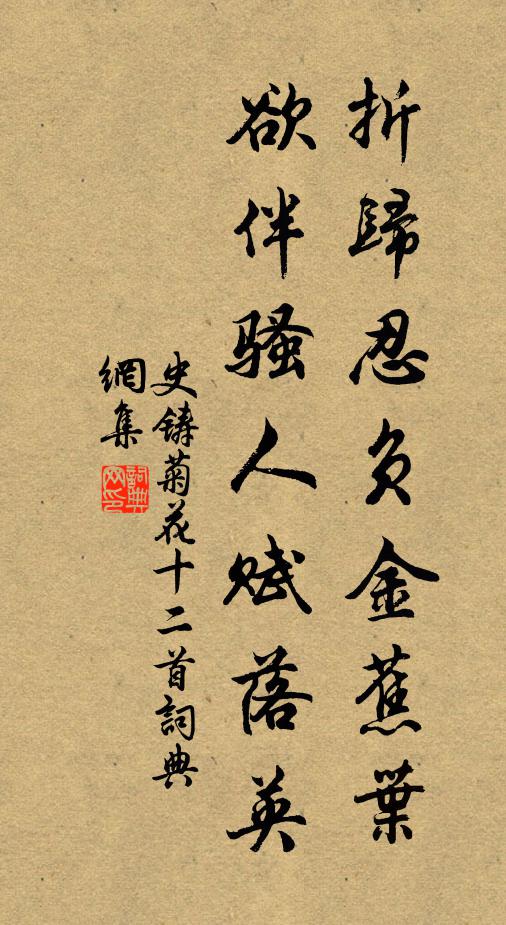 折歸忍負金蕉葉
欲伴騷人賦落英
史鑄菊花十二首詞典
網集
詞典
网印